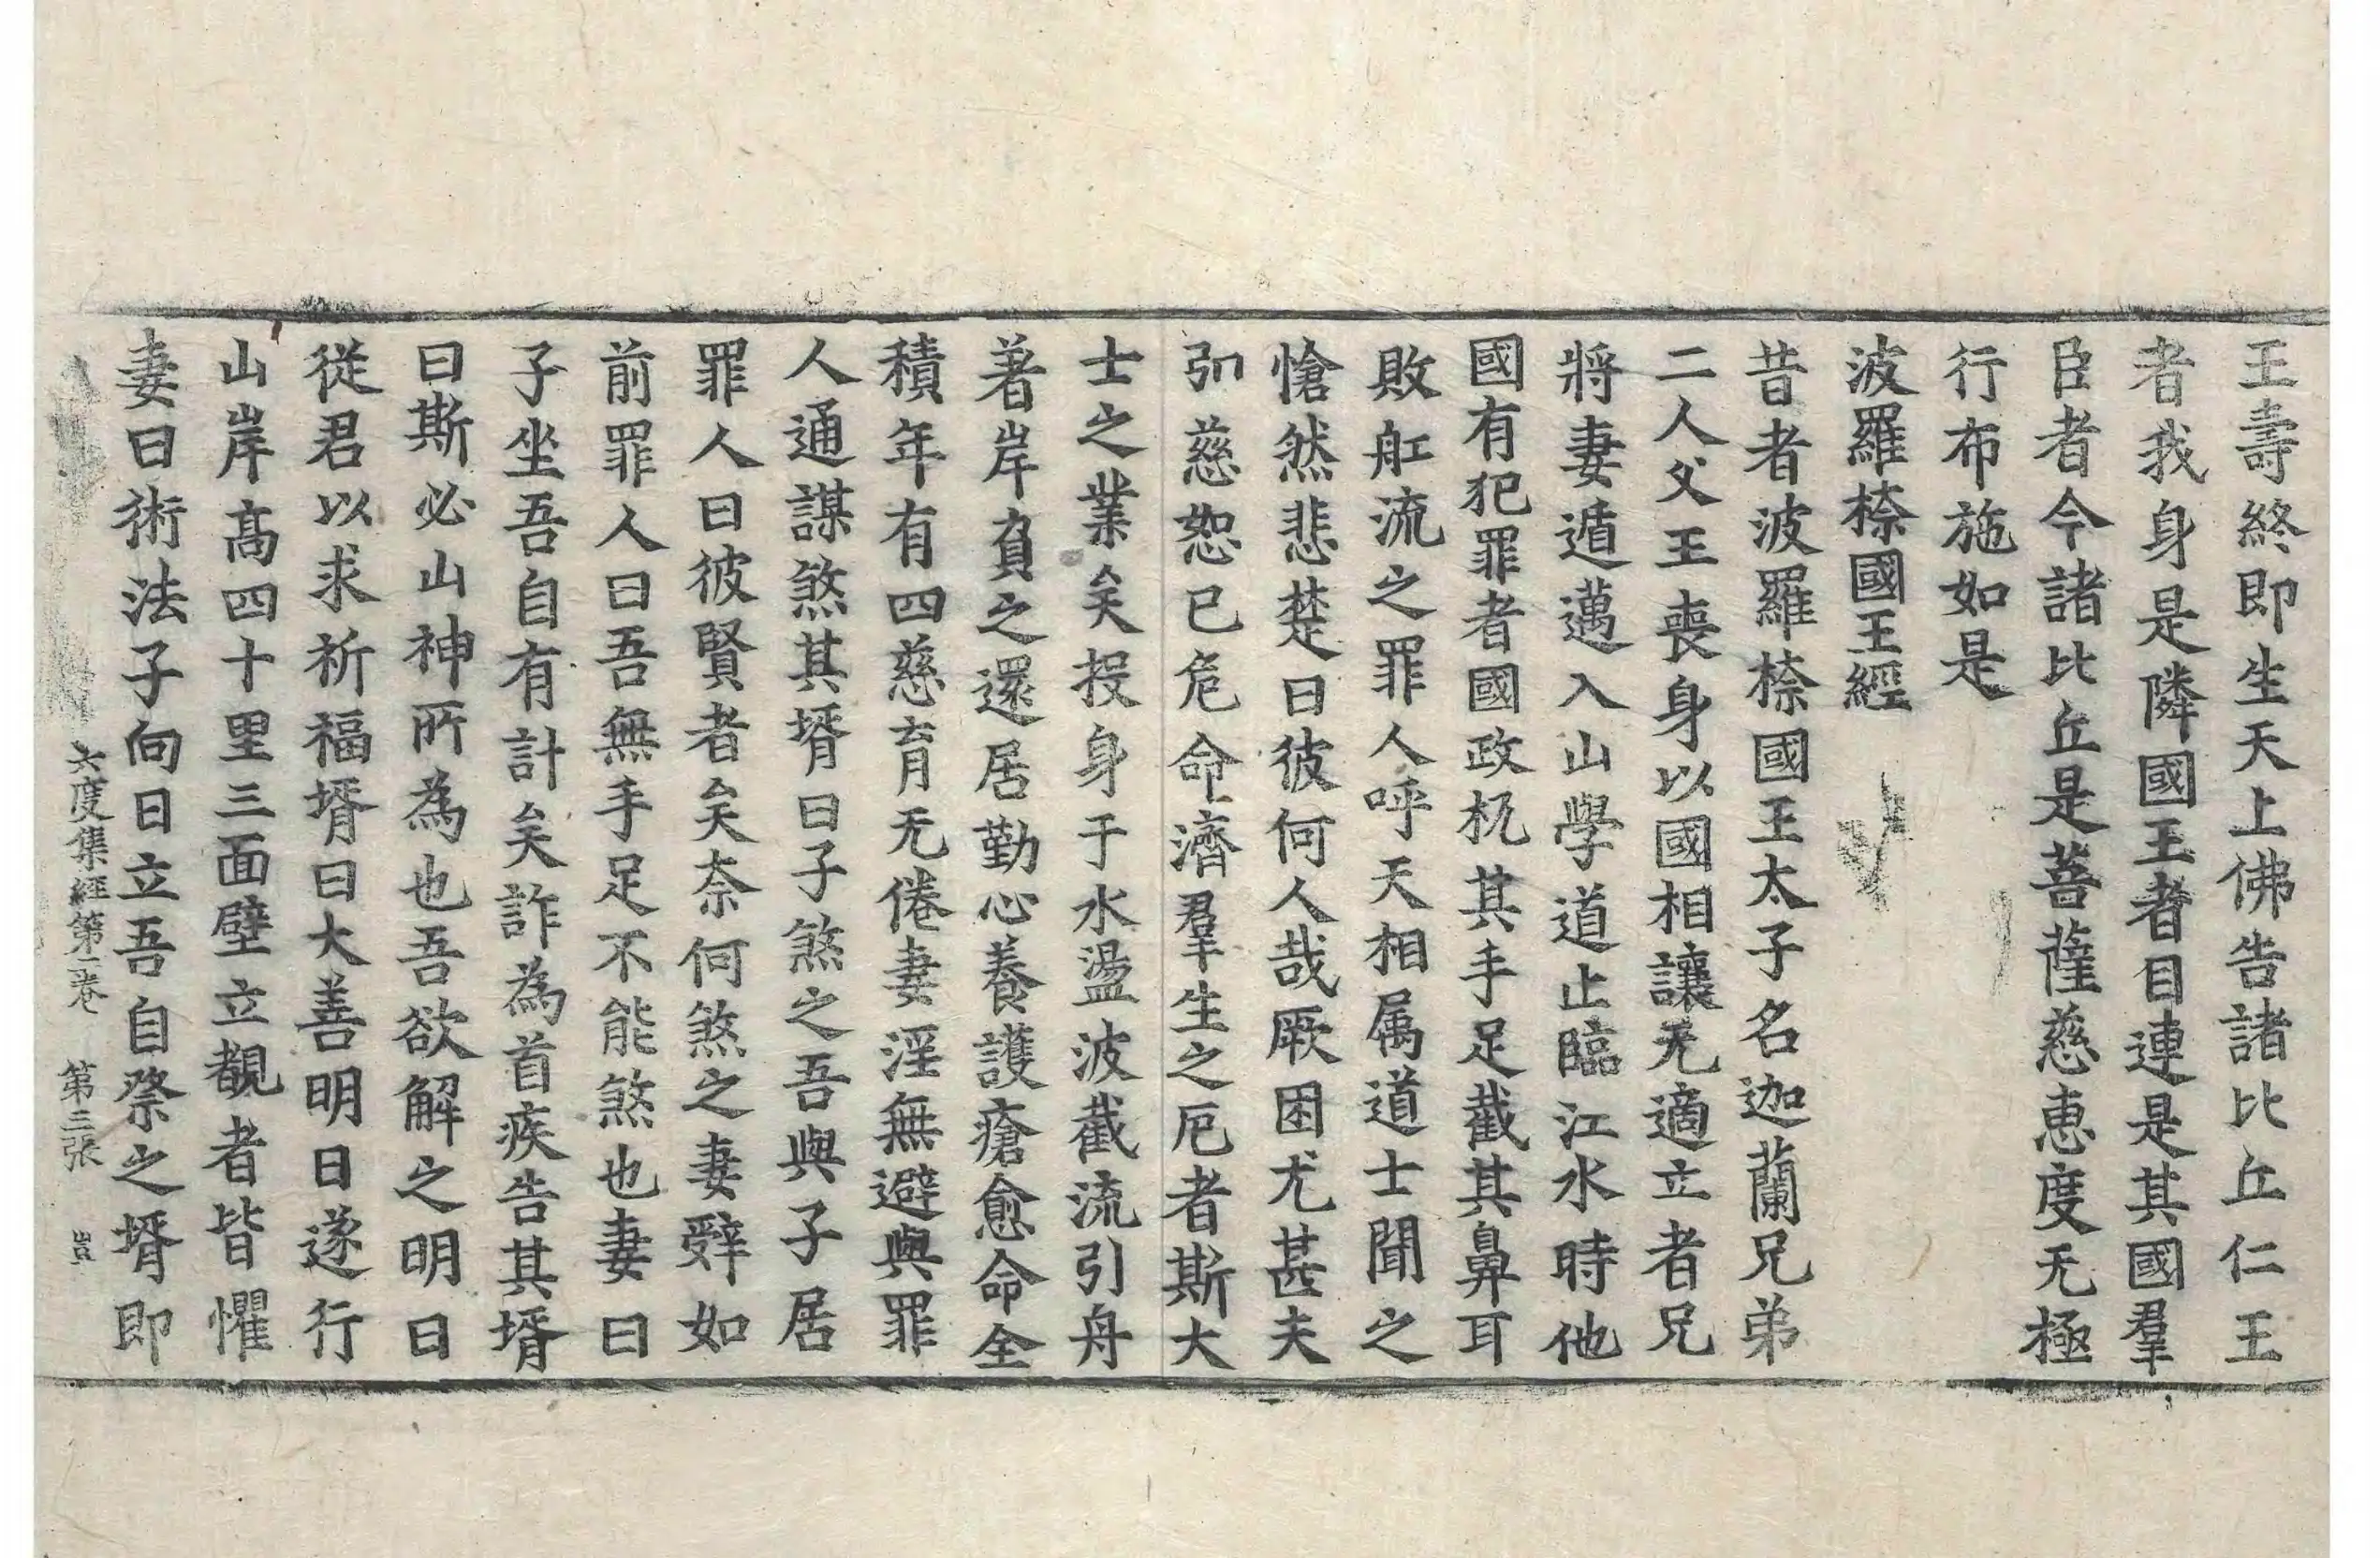 王壽終即生天上佛告諸比丘仁王
者我身是隣國王者目連是其國羣
臣者今諸比丘是菩薩慈惠度无極
行布施如是
波羅㮈國王經
昔者波羅㮈國王太子名迦蘭兄弟
二人父王喪身以國相讓无適立者兄
將妻遁邁入山學道止臨江水時他
國有犯罪者國政杌其手足截其鼻耳
敗舡流之罪人呼天相属道士聞之
愴然悲楚曰彼何人哉厥困尤甚夫
弘慈恕己危命濟羣生之厄者斯大
士之業矣投身于水盪波截流引舟
著岸負之還居勤心養護瘡愈命全
積年有四慈育无倦妻淫無避與罪
人通謀煞其壻曰子煞之吾與子居
罪人曰彼賢者矣奈何煞之妻辤如
前罪人曰吾無手足不能煞也妻曰
子坐吾自有計矣詐為首疾告其壻
曰斯必山神所為也吾欲解之明日
從君以求祈福壻曰大善明日遂行
山岸高四十里三面壁立覩者皆懼
妻曰術法子向日立吾自祭之壻即
六度集經第二卷 第三張 豈